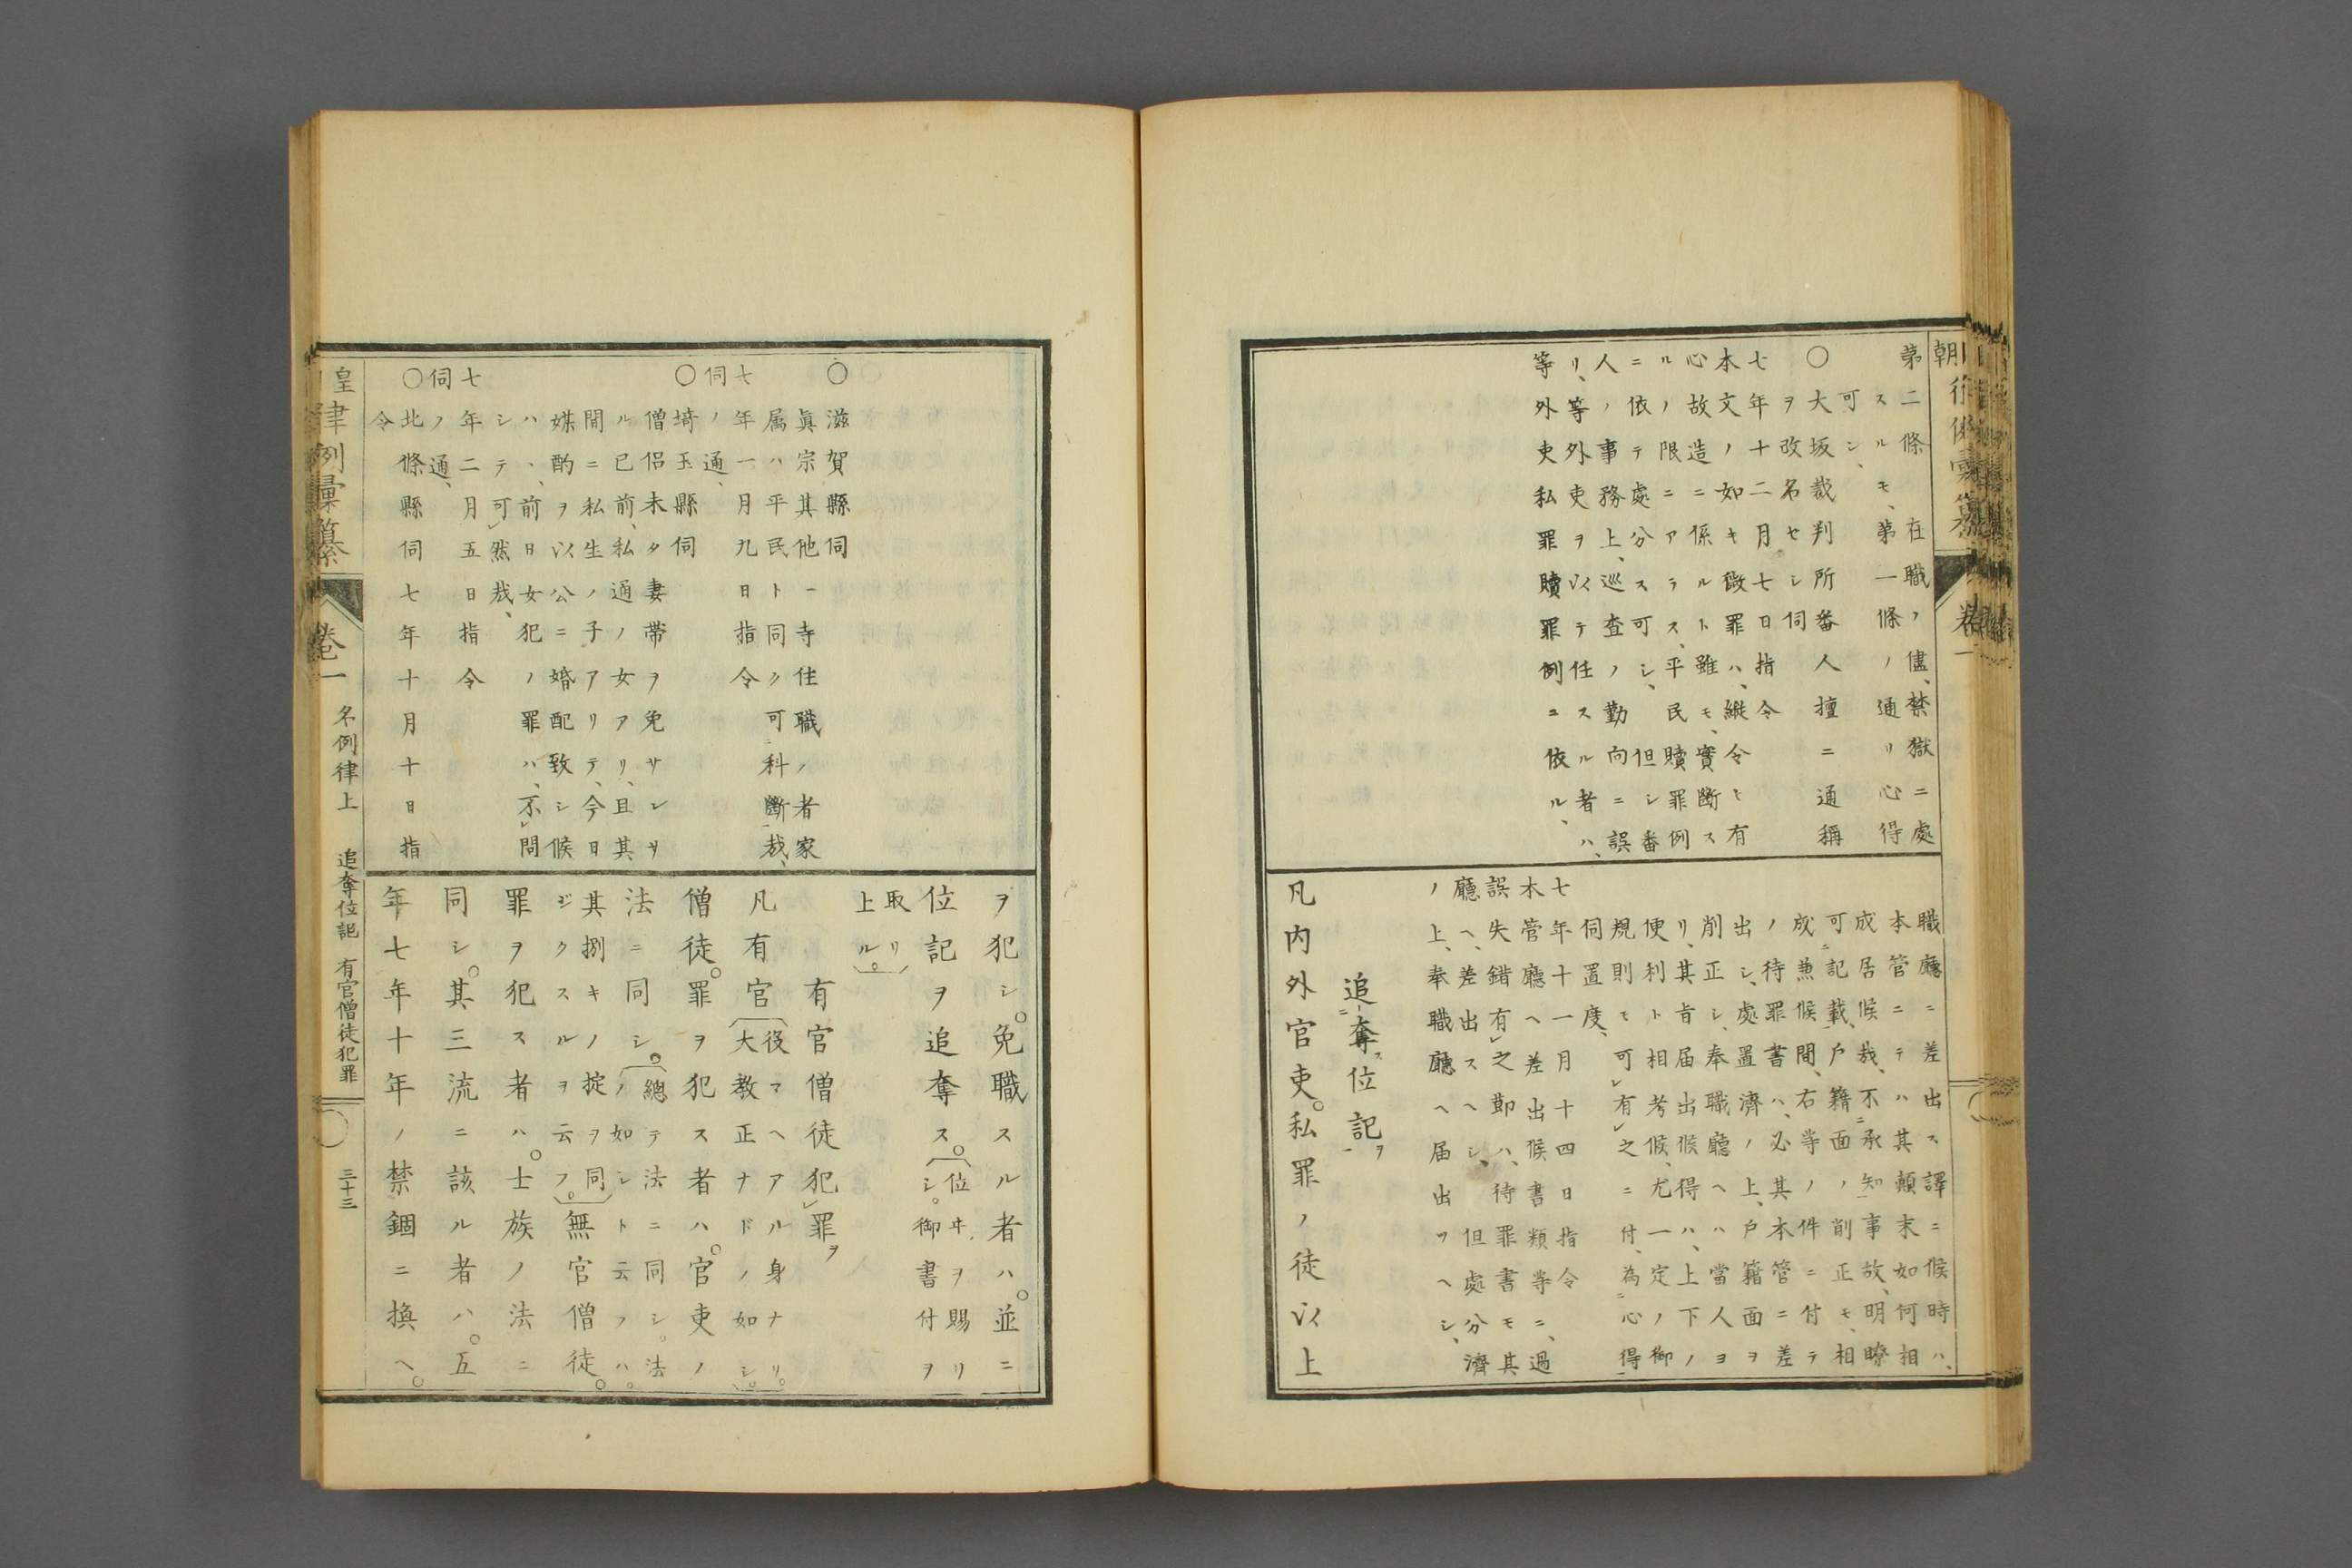 朝
卷一
第二條 在職ノ儘、禁獄ニ處
スルモ、第一條ノ通リ心得
可シ、
〇大坂裁判所番人擅ニ通稱
ヲ改名セシ伺
七年十二月七日指令
本文ノ如キ微罪ハ、縱令ヒ有
心故造ニ係ルト雖モ、實斷ス
ルノ限ニアラス、平民贖罪例
ニ依テ處分ス可シ、但シ番
人ノ事務上、巡査ノ勤向ニ誤
リ、等外吏ヲ以テ任スル者ハ、
等外吏私罪贖罪例ニ依ル、
職廳ニ差出ス譯ニ候時ハ、
本管ニテハ其顛末如何相
成居候哉、不ニ承知一事故、明瞭
可ニ記載一、戸籍面ノ削正モ、相
成兼候間、右等ノ件ニ付テ
ノ待罪書ハ、必其本管ニ差
出シ、處置濟ノ上、戸籍面ヲ
削正シ、奉職廳ヘハ當人ヨ
リ、其旨届出候得ハ、上下ノ
便利ト相考候、尤一定ノ御
規則モ可レ有レ之ニ付、為ニ心得一
伺置度、
七年十一月十四日指令
本管廳ヘ差出候書類等ニ、過
誤失錯有レ之節ハ、待罪書モ其
廳ヘ差出スヘシ、但處分濟
ノ上、奉職廳ヘ届出ツヘシ、
追ニ奪ス位記一ヲ
凡内外官吏。私罪ノ徒以上
〇滋賀縣伺
眞宗其他一寺住職ノ者家
属ハ平民ト同ク可ニ科斷一哉、
七年一月九日指令
伺ノ通、
〇埼玉縣伺
僧侶未タ妻帶ヲ免サレサ
ル已前、私通ノ女アリ、且其
間ニ私生ノ子アリテ、今日
媒酌ヲ以公ニ婚配致シ候
ハヽ、前日女犯ノ罪ハ、不レ問
シテ可レ然哉、
七年二月五日指令
伺ノ通、
〇北條縣伺七年十月十日指
令
ヲ犯シ。免職スル者ハ。並ニ
位記ヲ追奪ス。(位ヰヲ賜リシ。御書付ヲ
取リ上ルル。)
有官僧徒犯レ罪ヲ
凡有官(役マヘアル身ナリ。大教正ナドノ如シ。)
僧徒。罪ヲ犯ス者ハ。官吏ノ
法ニ同シ。(總テ法ニ同シ。法ノ如シト云フハ。
其捌キノ掟ヲ同ジクスルヲ云フ。)無官僧徒。
罪ヲ犯ス者ハ。士族ノ法ニ
同シ。其三流ニ該ル者ハ。五
年七年十年ノ禁錮ニ換ヘ。
皇律例彙纂 卷一 名例律上 追奪位記 有官僧徒犯罪 三十三